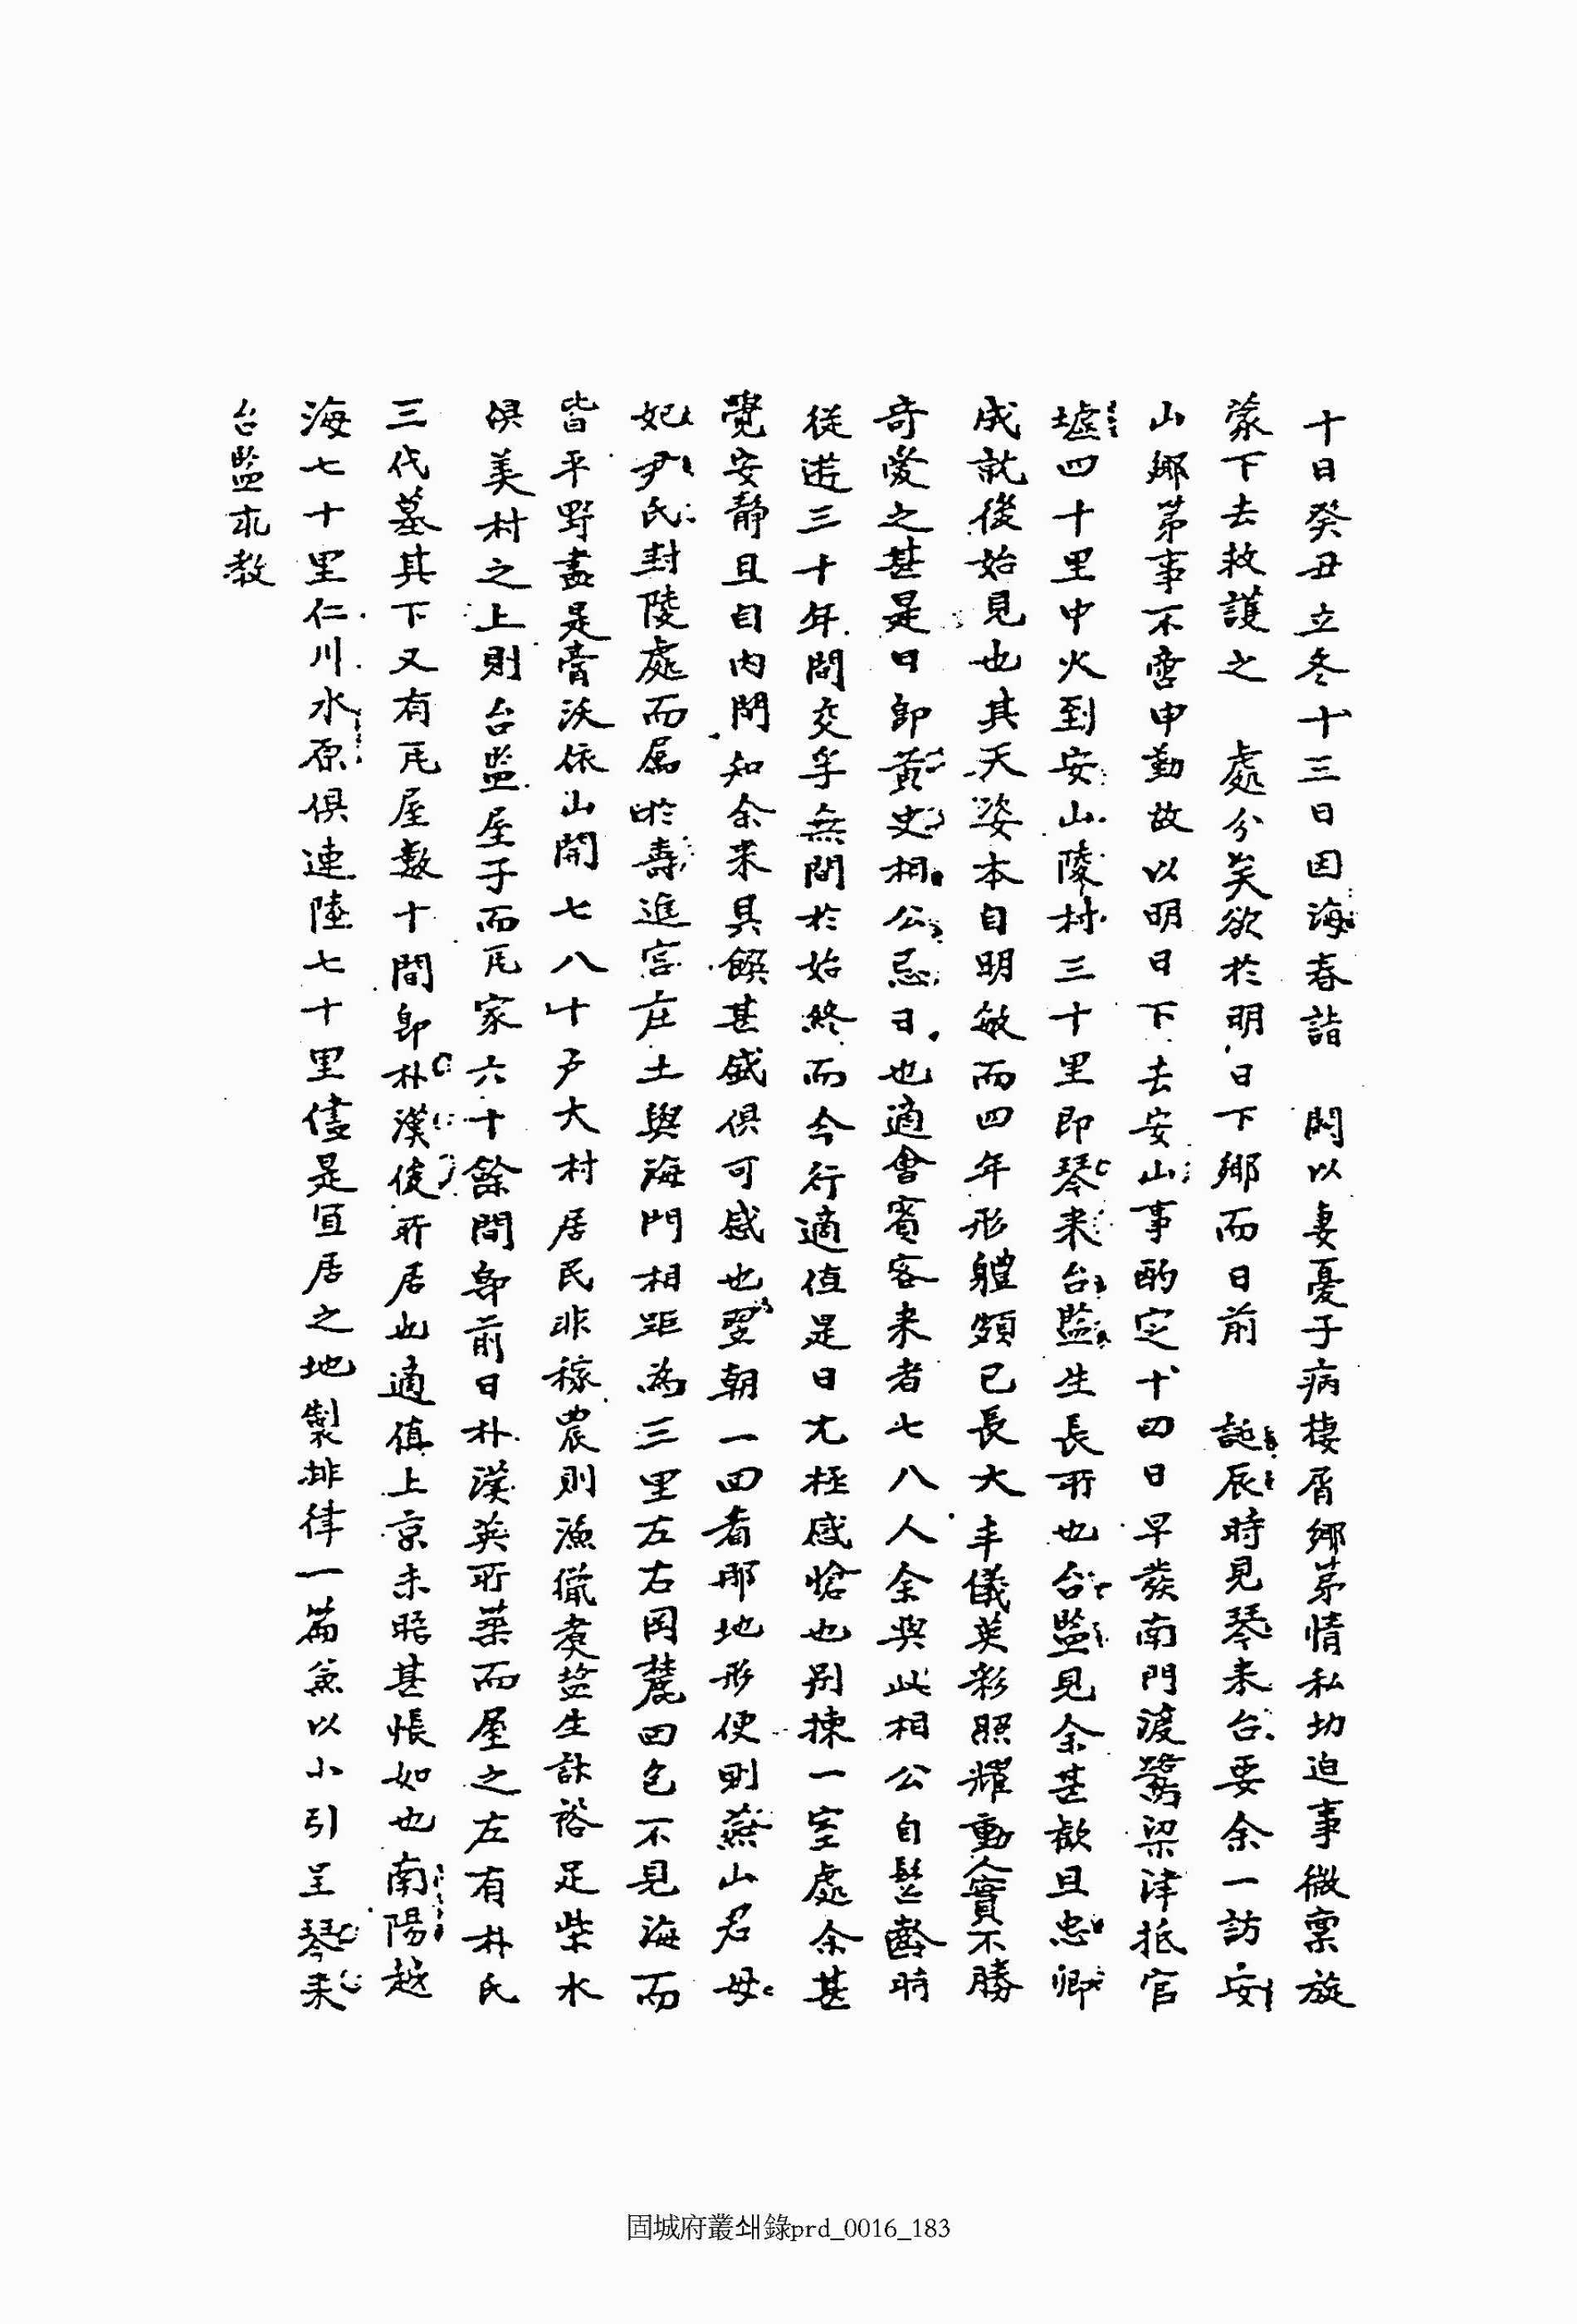 十日癸丑立冬十三日因海春詣 闕以妻憂子病棲屑鄉第情私切迫事微稟旋
蒙下去救護之 處分矣欲於明日下鄉而日前 誕辰時見琴來台要余一訪安
山鄉第事不啻申勤故以明日下去安山事酌定十四日早發南門渡鷺梁津抵官
墟四十里中火到安山陵村三十里即琴來台監生長所也台監見余甚歡且忠卿
成就後始見也其天姿本自明敏而四年形體頗已長大丰儀英彩照耀動人實不勝
奇愛之甚是日卽黃史相公忌日也適會賓客來者七八人余與此相公自髫齡時
從遊三十年間交孚無間於始終而今行適值是日尤極感愴也別揀一室處余甚
覺安靜且自內間知余來具饌甚盛俱可感也翌朝一回看那地形便則蘇山名母
妃尹氏封陵處而屬於壽進宮庄土與海門相距為三里左右岡麓四包不見海而
皆平野盡是膏沃依山開七八十戶大村居民非稼農則漁獵煑鹽生計裕足柴水
俱美村之上則台監屋子而瓦家六十餘間卽前日朴漢英所築而屋之左有朴氏
三代墓其下又有瓦屋數十間卽朴漢俊所居也適值上京未晤甚悵如也南陽越
海七十里仁川水原俱連陸七十里儘是宜居之地製排律一篇兼以小引呈琴來
台監求教
固城府叢쇄錄prd_0016_183